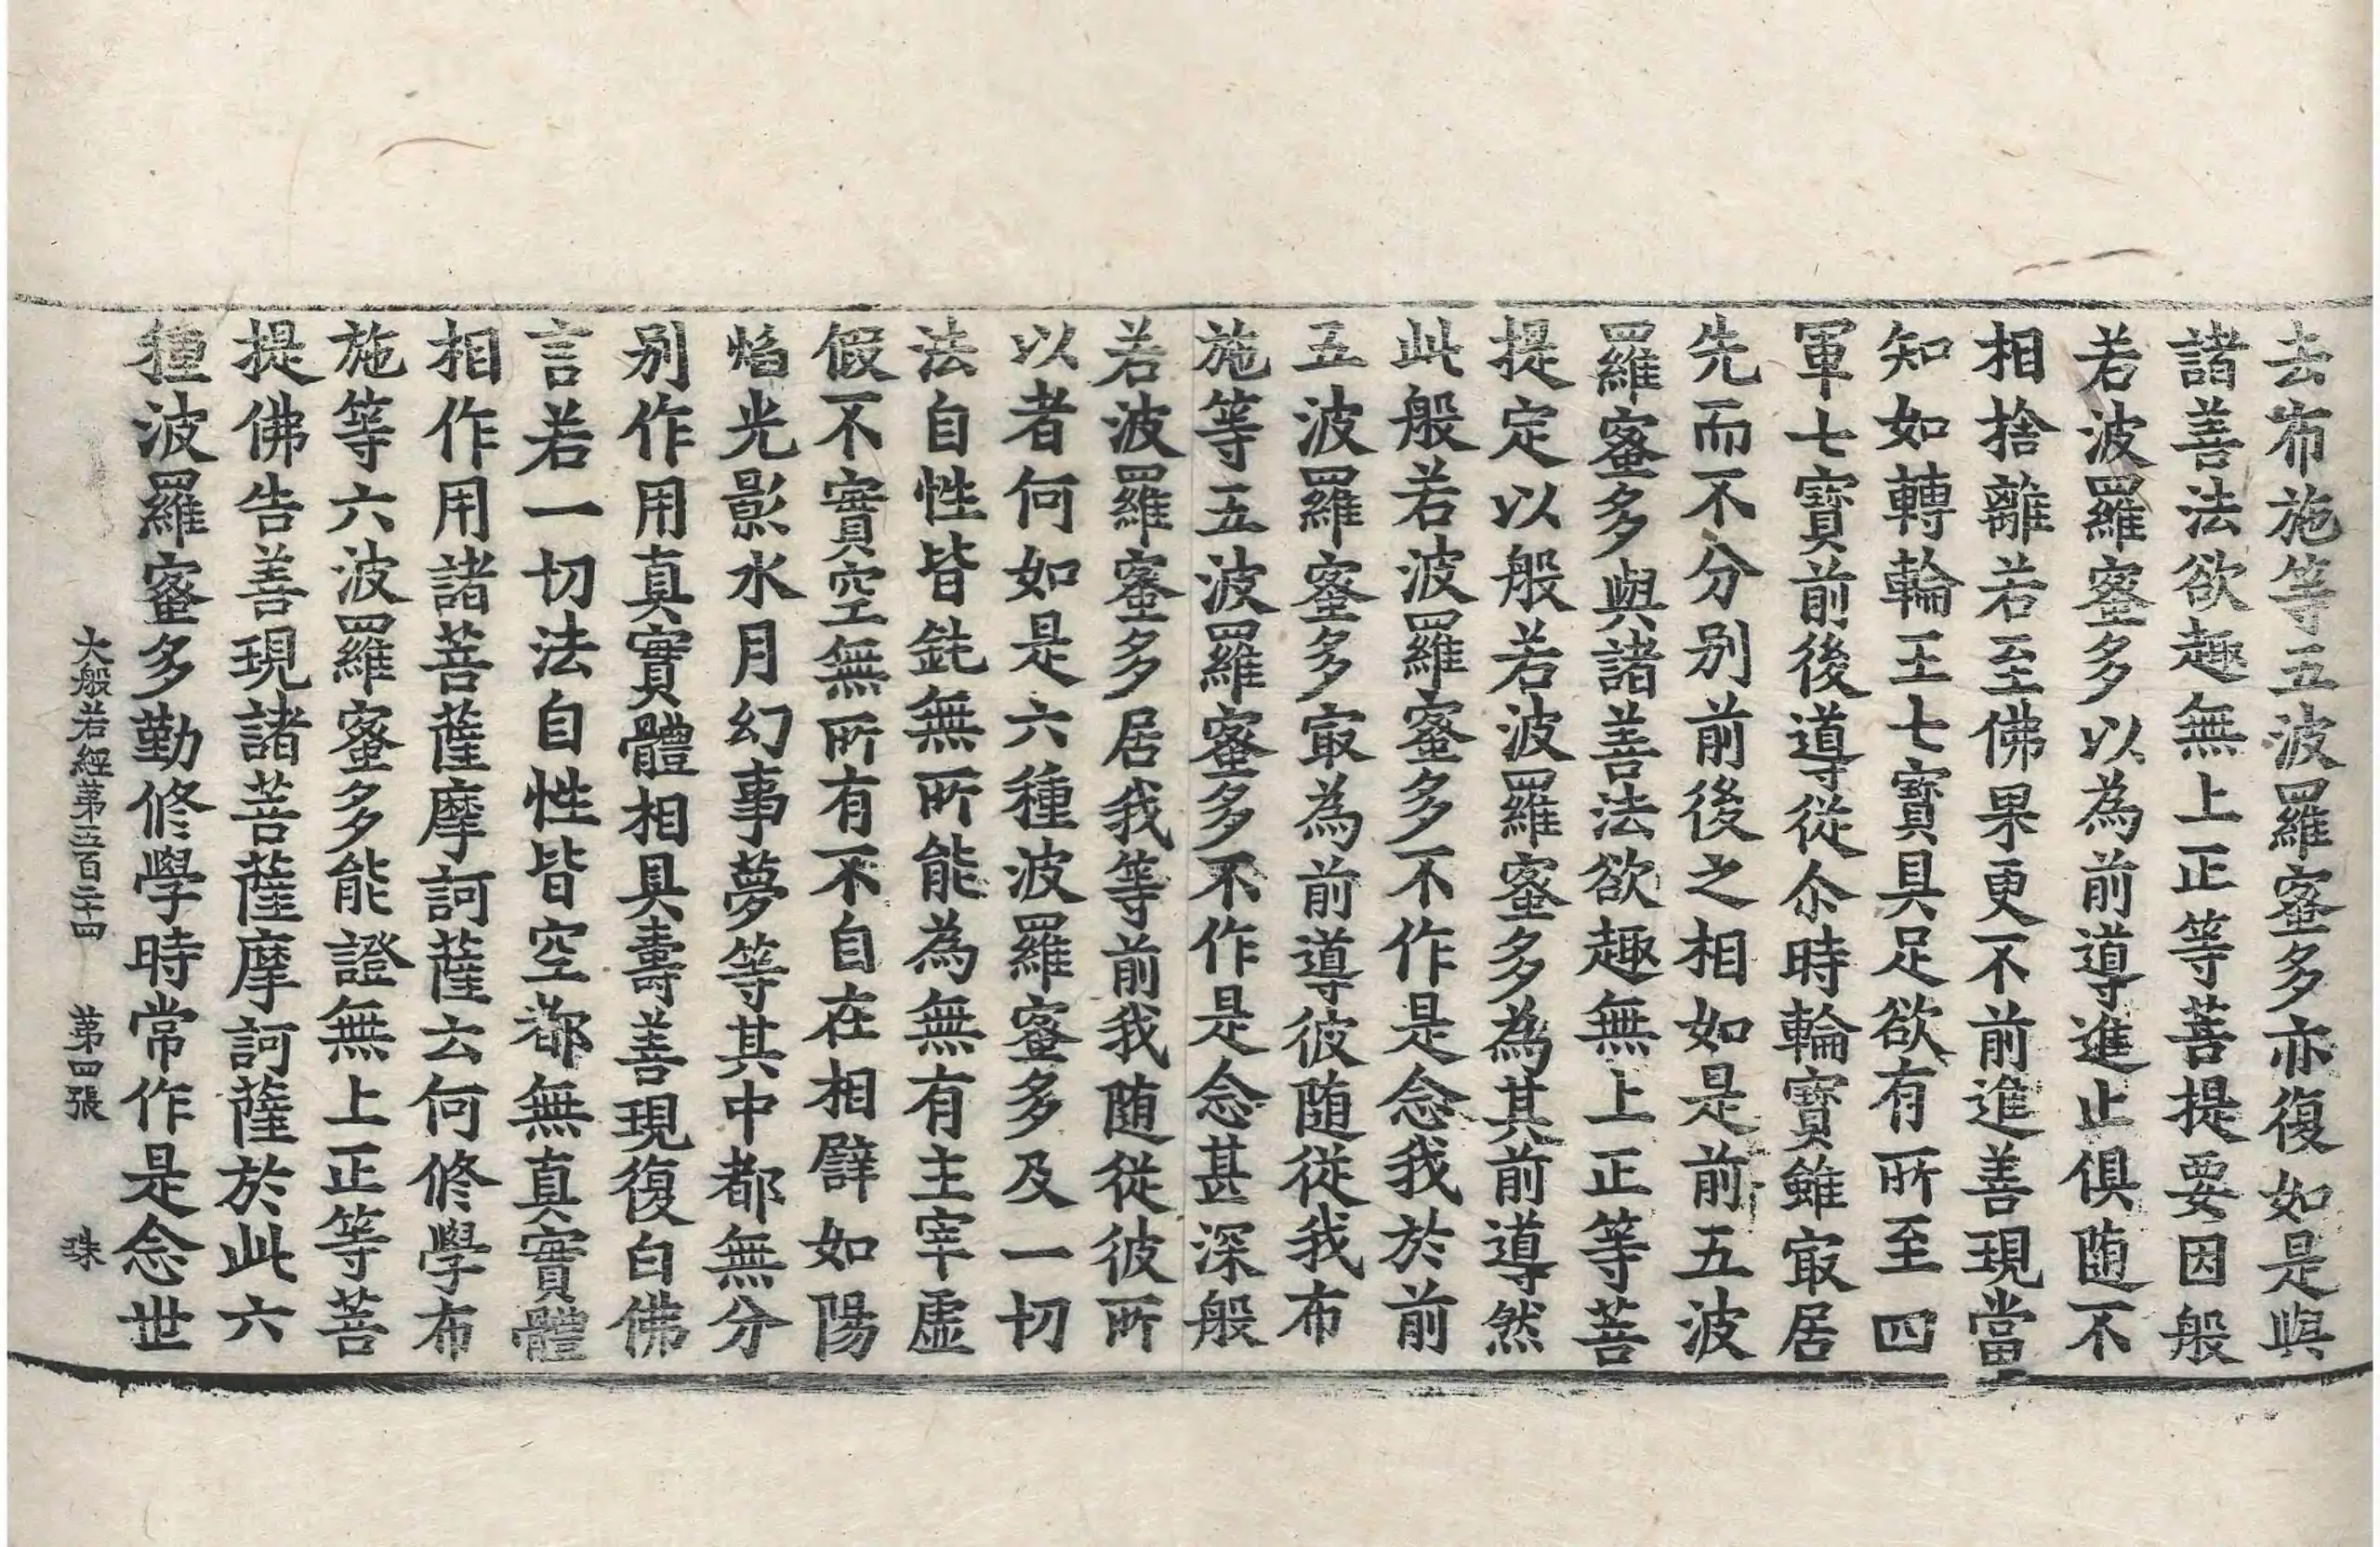 去布施等五波羅蜜多亦復如是與
諸善法欲趣無上正等菩提要因般
若波羅蜜多以為前導進止俱随不
相捨離若至佛果更不前進善現當
知如轉輪王七寶具足欲有所至四
軍七寶前後導從尒時輪寶雖㝡居
先而不分别前後之相如是前五波
羅蜜多與諸善法欲趣無上正等菩
提定以般若波羅蜜多為其前導然
此般若波羅蜜多不作是念我於前
五波羅蜜多㝡為前導彼随從我布
施等五波羅蜜多不作是念甚深般
若波羅蜜多居我等前我随從彼所
以者何如是六種波羅蜜多及一切
法自性皆鈍無所能為無有主宰虛
假不實空無所有不自在相譬如陽
焰光影水月幻事夢等其中都無分
别作用真實體相具壽善現復白佛
言若一切法自性皆空都無真實體
相作用諸菩薩摩訶薩云何修學布
施等六波羅蜜多能證無上正等菩
提佛告善現諸菩薩摩訶薩於此六
種波羅蜜多勤修學時常作是念世
大般若經第五百二十四 第四張 珠